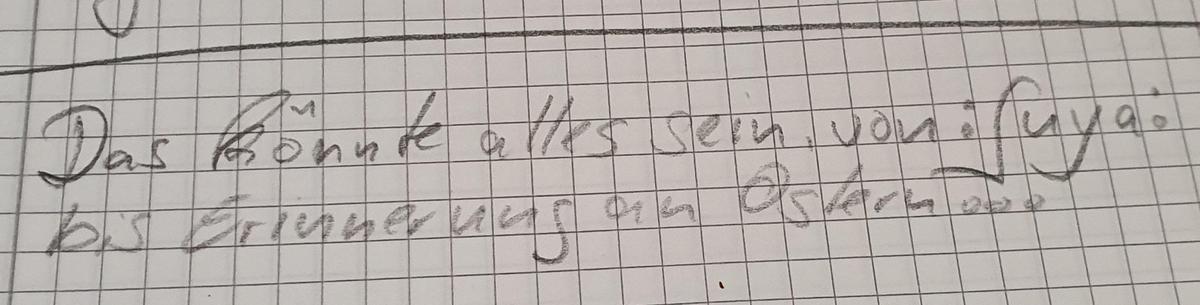 Das könnte alles sein, von: fuya:
bis Erinnerung an Ostern...